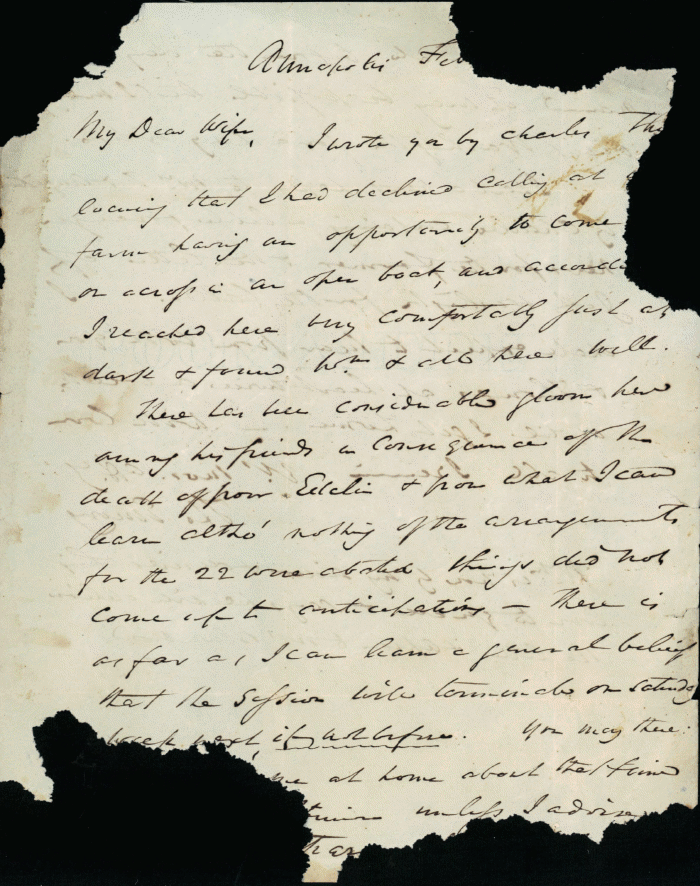 Annapolis Feb
My Dear Wife, I wrote you by Charles This
evening that I had declined calling at
farm having an opportunity to come
on across in an open boat, and accordi
I reached here very comfortably just at
dark & found & all here well.
There has been considerable gloom here
among his friends in consequence of the
death of poor Edelin & from what I can
learn altho' nothing of the arrangements
for the 22 were abated things did not
come up to anticipation — There is
as far as I can learn a general belief
that the Session will terminate on saturday
week next, if not before. You may there:
me at home about that time
unless I advise